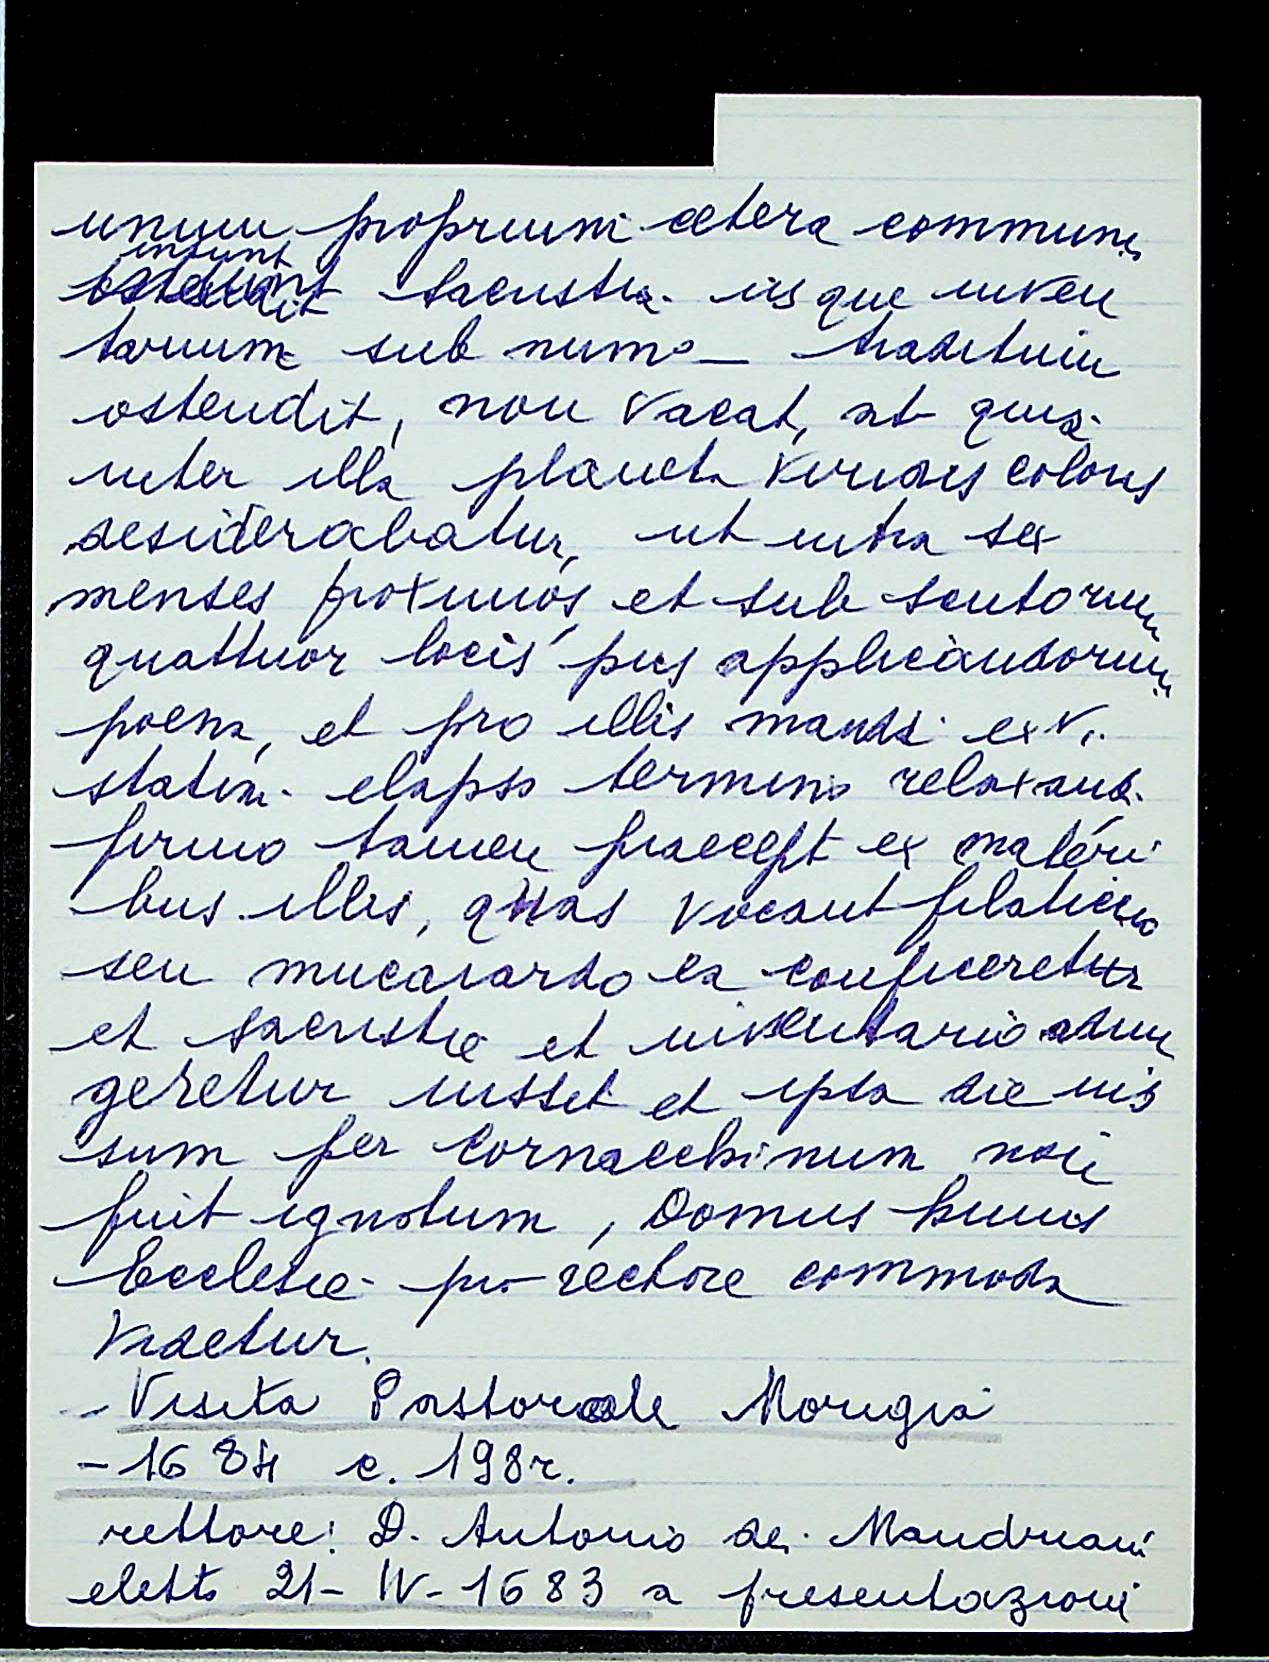 unum proprium cetera communia
insunt
sacristia iis que inven
tarium sub num° — traditum
ostendit, non vacat, at quia
inter illa planeta viridis coloris
desiderabatur, ut intra sex
menses proximos et sub scutorum
quattuor locis piis applicandorum
poena, et pro illis mand. ex v.
statim elapso termino relaxand.
firmo tamen praecept ex materi
bus illis, quas vocant filaticcio
seu mucaiardo ea conficeretur
et sacristie et inventario adiun
geretur iusset et ipsa die nis
sum per Cornacchinum non
fuit ignotum, Domus huius
Ecclesie pro rectore commoda
videtur.
- Visita Pastorale Morigia
- 1684 c. 198r.
rettore: D. Antonio de Mandriani
eletto 21-IV-1683 a presentazioni